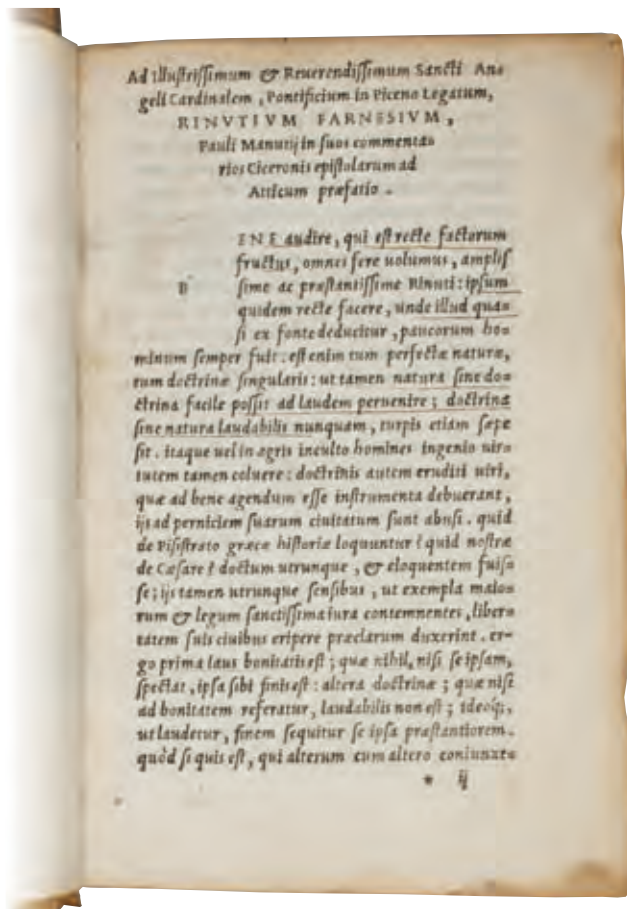 Ad Illustrissimum & Reuerendissimum Sancti An=
geli Cardinalem, Pontificium in Piceno Legatum,
RINVTIVM FARNESIVM,
Pauli Manutij in suos commenta=
rios Ciceronis epistolarum ad
Atticum præfatio.
B ENE audire, qui est recte factorum
fructus, omnes fere uolumus, amplis
sime ac præstantissime Rinuti: ipsum
quidem recte facere, unde illud qua=
si ex fonte deducitur, paucorum ho=
minum semper fuit. est enim tum perfectæ naturæ,
tum doctrinæ singularis: ut tamen natura sine do=
ctrina facile possit ad laudem peruenire; doctrina
sine natura laudabilis nunquam, turpis etiam sæpe
sit. itaque uel in agris inculto homines ingenio uir=
tutem tamen coluere: doctrinis autem eruditi uiri,
quæ ad bene agendum esse instrumenta debuerant,
ijs ad perniciem suarum ciuitatum sunt abusi. quid
de Pisistrato græcæ historiæ loquuntur? quid nostræ
de Cæsare? doctum utrunque, & eloquentem fuis=
se; ijs tamen utrunque sensibus, ut exempla maio=
rum & legum sanctissima iura contemnentes, liber=
tatem suis ciuibus eripere præclarum duxerint. er=
go prima laus bonitatis est; quæ nihil, nisi se ipsam,
spectat, ipsa sibi finis est: altera doctrinæ; quæ nisi
ad bonitatem referatur, laudabilis non est; ideoq́;,
ut laudetur, finem sequitur se ipsa præstantiorem.
quòd si quis est, qui alterum cum altero coniunxe=
* ij